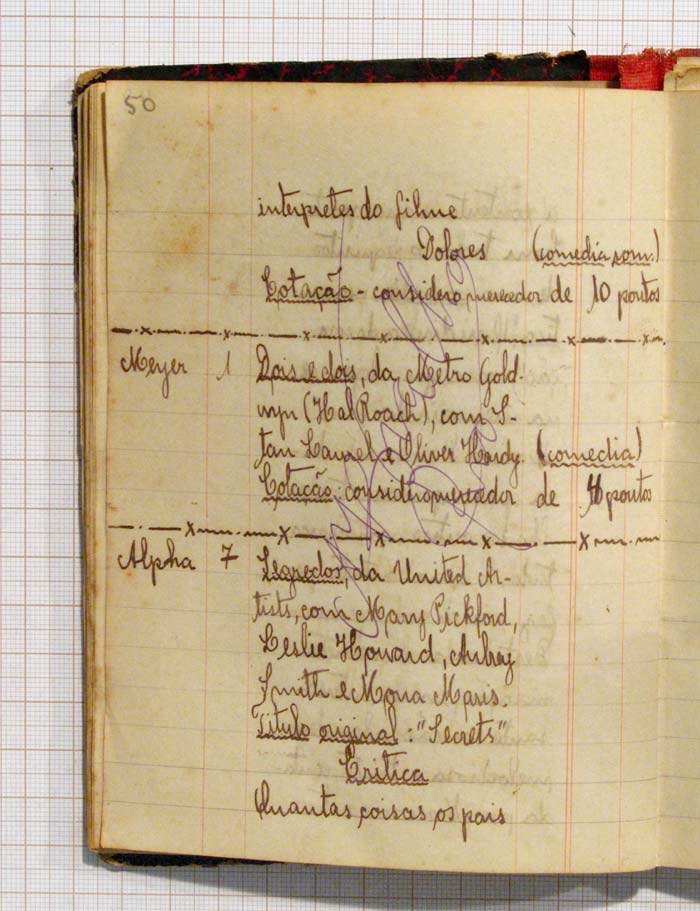 50
interpretes do filme
Dolores (comedia som.)
Cotação - considero, merecedor de 10 pontos
Meyer 1 Dois e dois, da Metro Gold-
wyn (Hal Roach), com S-
tan Laurel e Oliver Hardy. (comedia)
Cotação: considero merecedor de pontos
Alpha 7 Segredos, da United Ar-
tists, com Mary Pickford,
Leslie Howard, Aubrey
Smith e Mona Maris.
Titulo original: "Secrets"
Critica
Quantas coisas os pais